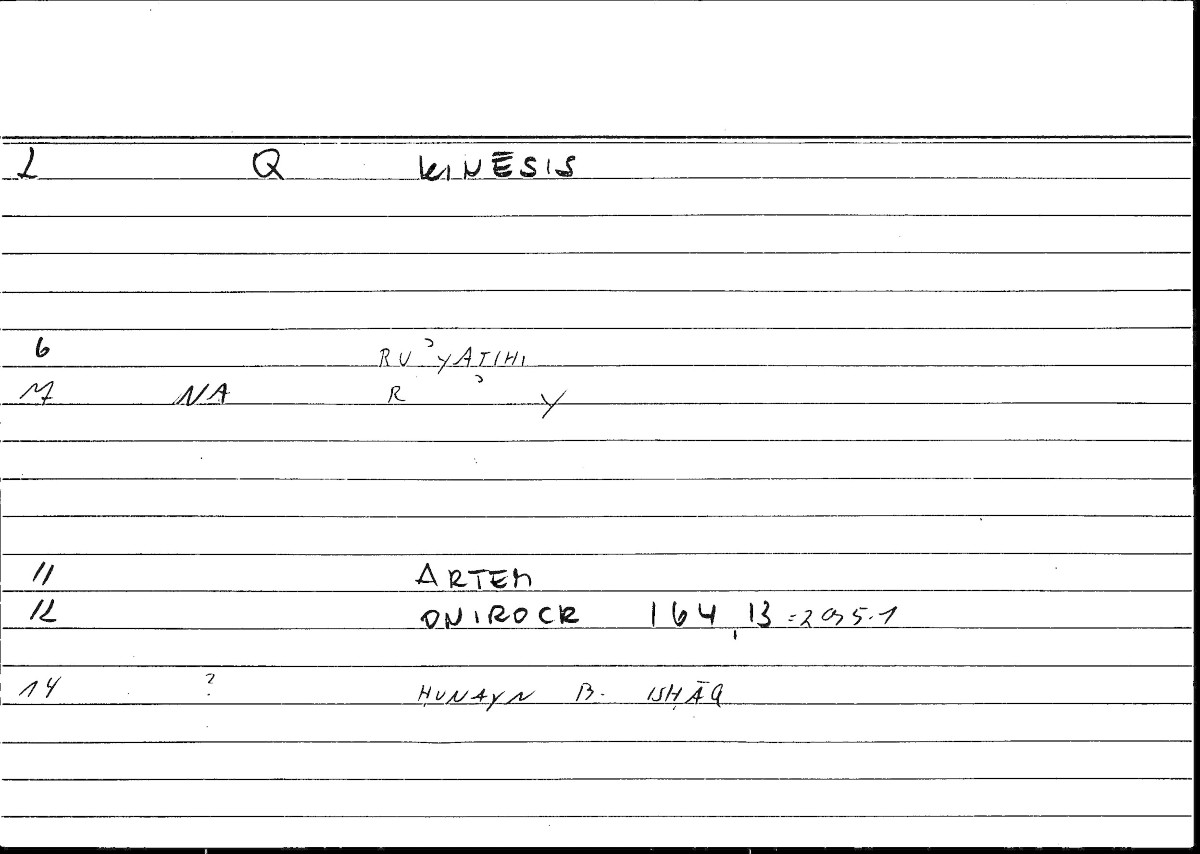 1 Q KINĒSIS
6 RUʾYATIHI
7 NA R ʾ Y
11 ARTEM
12 ONIROCR 164,13
14 ? ḤUNAYN B. ISḤĀQ